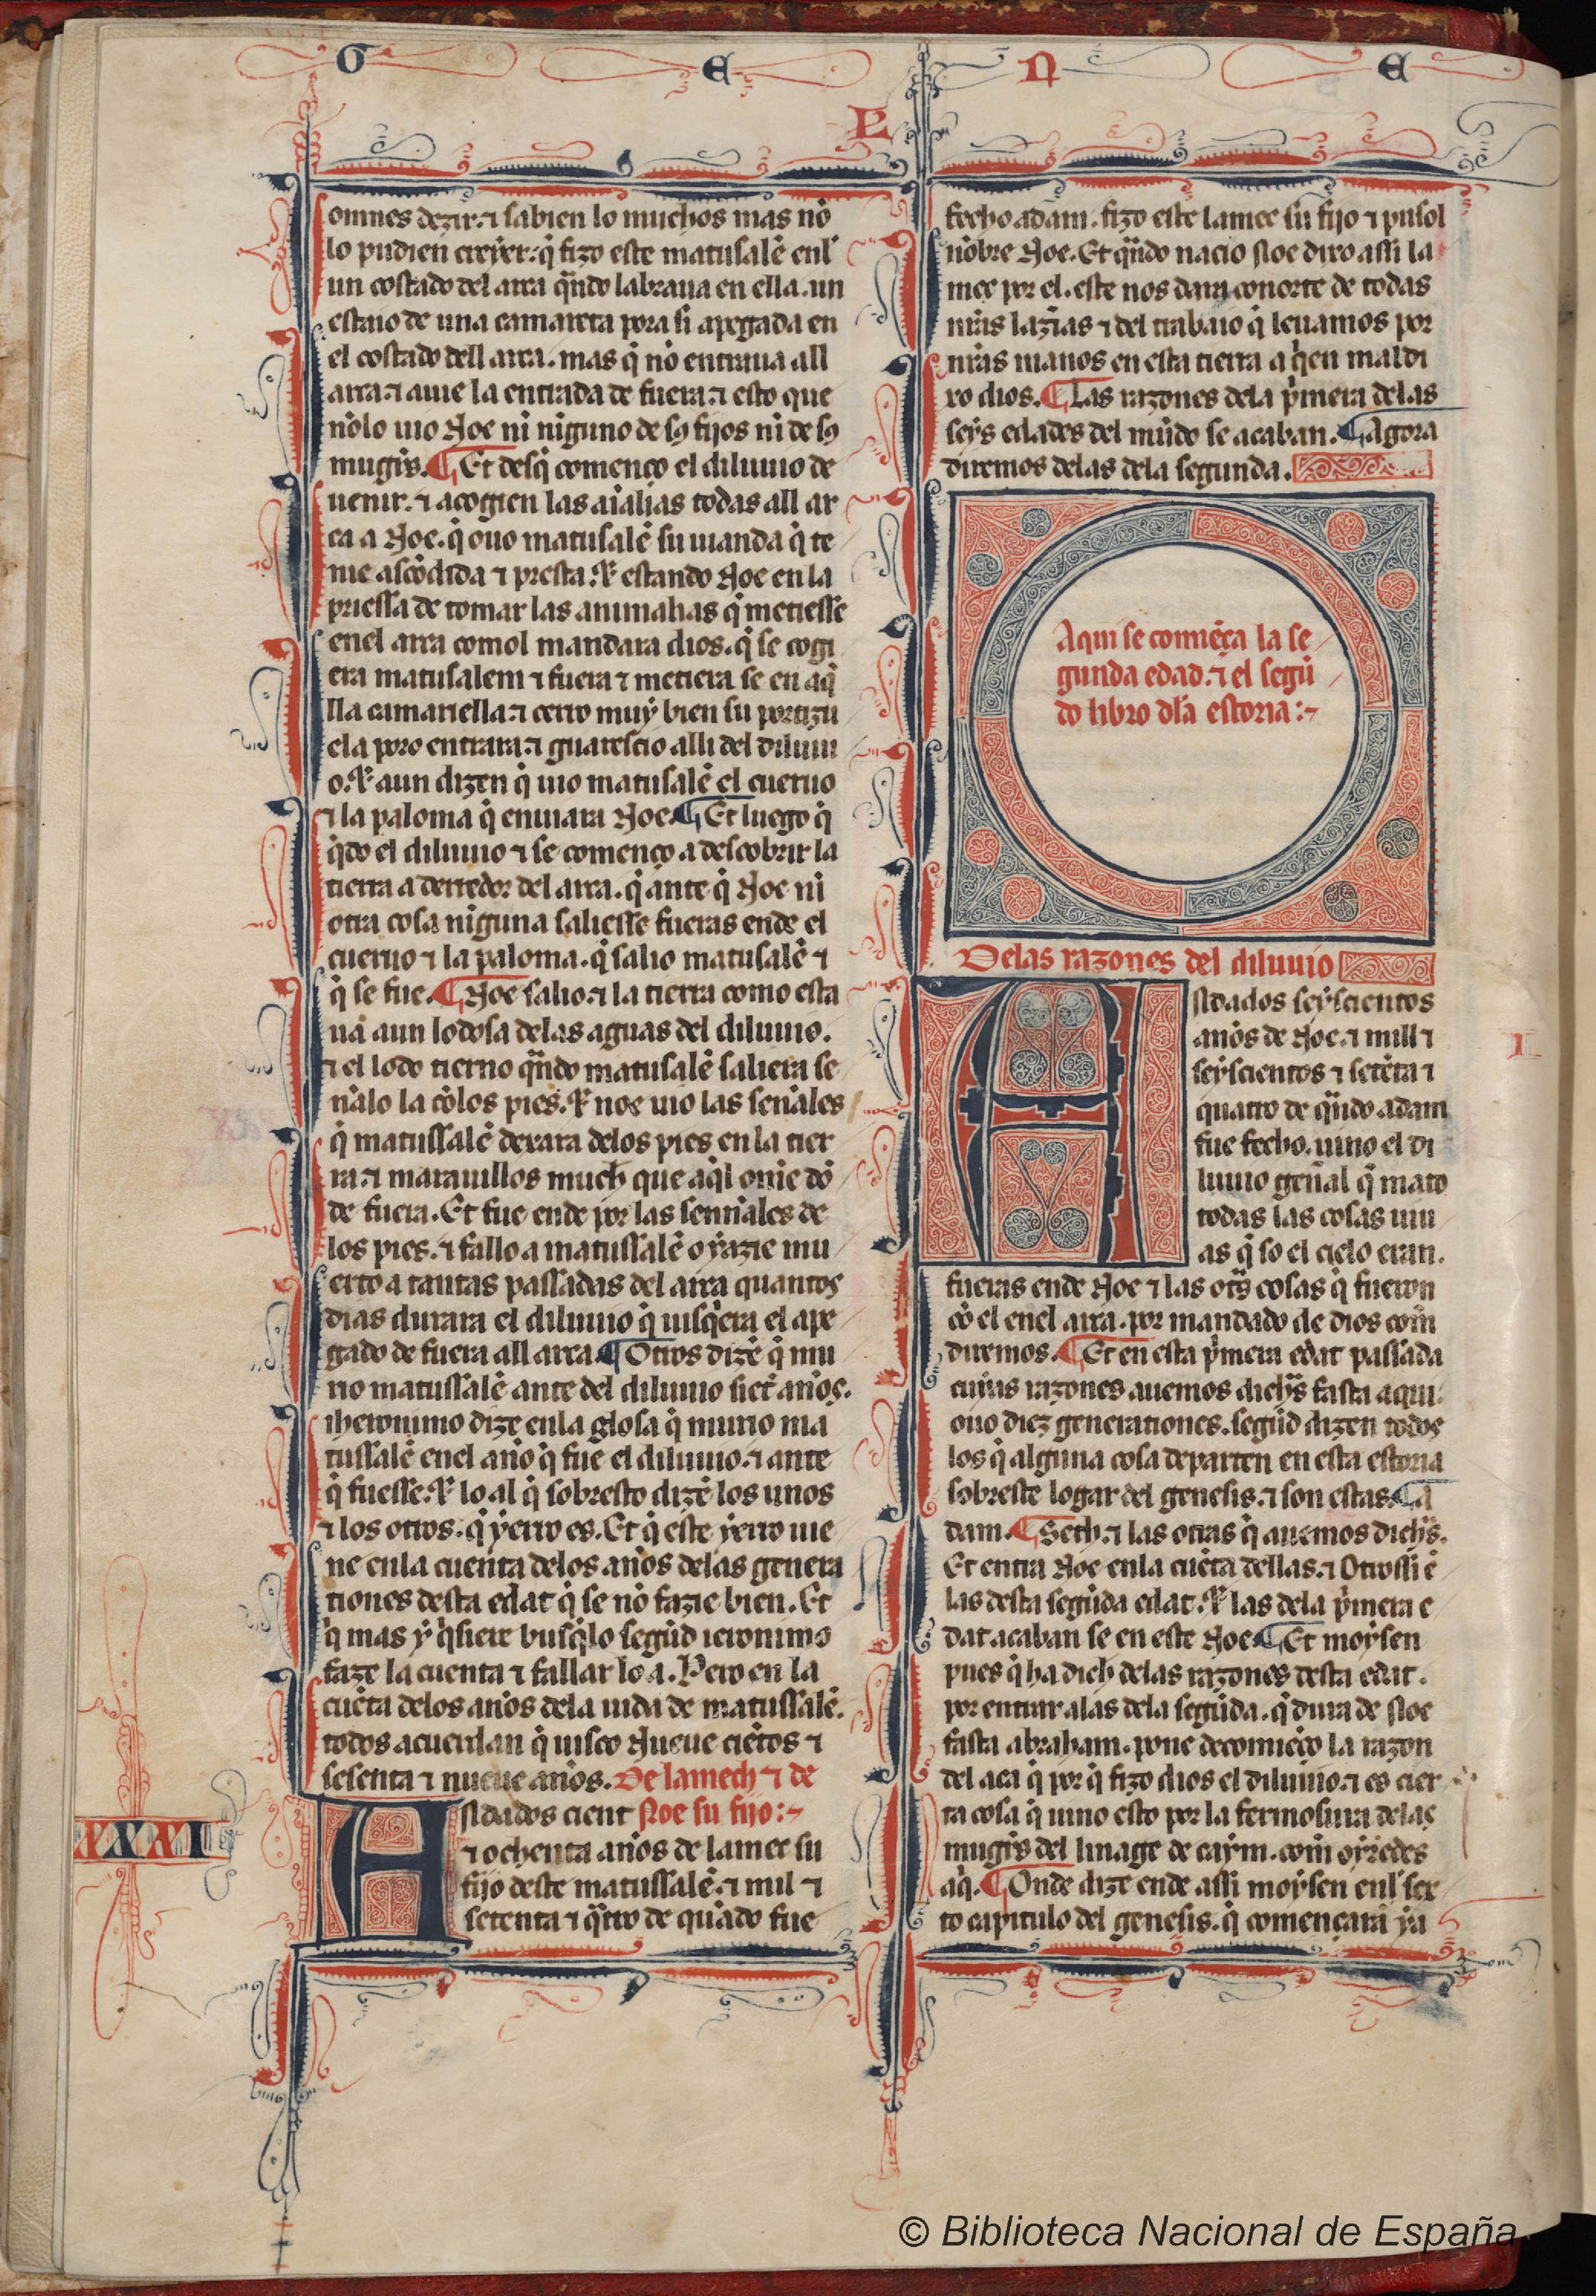 G E N E
P
omnes dezir. ⁊ sabien lo muchos mas nõ
lo pudien creyer: q̃ fizo este matusalẽ enl
un costado del arca q̃ndo labraua en ella. un
estaio de una camareta pora si apegada en
el costado dell arca. mas q̃ nõ entraua all
arca. ⁊ auie la entrada de fuera. ⁊ esto que
nõlo uio Noe ni niguno de sꝰ fijos ni de sꝰ
mugr̃s. ¶ Et desq̃ començo el diluuio de
uenir. ⁊ acogien las aĩalias todas all ar
ca a Noe. q̃ ouo matusalẽ su uianda q̃ te
nie ascõdida ⁊ presta. ⁊ estando Noe en la
priessa de tomar las animalias q̃ metiesse
enel arca comol mandara dios. q̃ se cogi
era matusalem ⁊ fuera ⁊ metiera se en aq̃
lla camariella. ⁊ cerro muy bien su portizu
ela poro entrara. ⁊ guarescio alli del diluui
o. ⁊ aun dizen q̃ uio matusalẽ el cueruo
⁊ la paloma q̃ enuiara Noe. ¶ Et luego q̃
q̃do el diluuio ⁊ se començo a descobrir la
tierra a derredor del arca. q̃ ante q̃ Noe ni
otra cosa niguna saliesse fueras ende el
cueruo ⁊ la paloma. q̃ salio matusalẽ ⁊
q̃ se fue. ¶ Noe salio. ⁊ la tierra como esta
ua aun lodosa delas aguas del diluuio.
⁊ el lodo tierno q̃ndo matusalẽ saliera se
nalo la cõlos pies. ⁊ noe uio las senales
q̃ matussalẽ dexara delos pies en la tier
ra. ⁊ marauillos much que aq̃l omie dõ
de fuera. Et fue ende por las sennales de
los pies. ⁊ fallo a matussalẽ o yazie mu
erto a tantas passadas del arca quantos
dias durara el diluuio q̃ uisq̃era el ape
gado de fuera all arca. ¶ Otros dizẽ q̃ mu
rio matussalẽ ante del diluuio siet anos.
iheronimo dize enla glosa q̃ murio ma
tussalẽ enel ano q̃ fue el diluuio. ⁊ ante
q̃ fuesse. ⁊ lo al q̃ sobresto dizẽ los unos
⁊ los otros. q̃ yerro es. Et q̃ este yerro uie
ne enla cuenta delos anos delas genera
tiones desta edat q̃ se nõ fazie bien. Et
q̃ mas y q̃siere busq̃lo segũd ieronimo
faze la cuenta ⁊ fallar lo a. Pero en la
cuẽta delos anos dela uida de matussalẽ.
todos acuerdan q̃ uisco Nueue ciẽtos ⁊
sesenta ⁊ nueue anos. De lamech ⁊ de
Noe su fijo:~
XXXI
A sidados cient
⁊ ochenta anos de lamec su
fijo deste matussalẽ. ⁊ mil ⁊
setenta ⁊ q̃tro de quãdo fue
fecho adam. fizo este lamec su fijo ⁊ pusol
nõbre Noe. Et q̃ndo nacio Noe dixo assi la
mec por el. este nos dara conorte de todas
nr̃as lazr̃ias ⁊ del trabaio q̃ leuamos por
nr̃as manos en esta tierra a q̃en maldi
xo dios. ¶ Las razones dela p̃mera delas
seys edades del mũdo se acaban. ¶ Agora
diremos delas dela segunda.
Aqui se comiẽça la se
gunda edad. ⁊ el segũ
do libro dl̃a estoria:~
Delas razones del diluuio
I
A sidados seyscientos
anos de Noe. ⁊ mill ⁊
seyscientos ⁊ setẽta ⁊
quatro de q̃ndo adam
fue fecho. uino el di
luuio gen̄al q̃ mato
todas las cosas uiu
as q̃ so el cielo eran.
fueras ende Noe ⁊ las otr̃s cosas q̃ fueron
cõ el enel arca. por mandado de dios com̃
diremos. ¶ Et en esta p̃mera edat passada
cuyas razones auemos dichꝰs fasta aqui.
ouo diez generationes. segũd dizen todos
los q̃ alguna cosa departen en esta estoria
sobreste logar del genesis. ⁊ son estas. ¶ A
dam. ¶ Seth. ⁊ las otras q̃ auemos dichꝰs.
Et entra Noe enla cuẽta dellas. ⁊ Otrossi ẽ
las desta segũda edat. ⁊ las dela p̃mera e
dat acaban se en este Noe. ¶ Et moysen
pues q̃ ha dich delas razones desta edat.
por entrar alas dela segũda. q̃ dura de Noe
fasta abraham. pone decomiẽço la razon
del aca q̃ por q̃ fizo dios el diluuio. ⁊ es cier
ta cosa q̃ uino esto por la fermosura delas
mugr̃s del linage de caym. com̃ oyredes
aq̃. ¶ Onde dize ende assi moysen enl ser
to capitulo del genesis. q̃ començara ya
© Biblioteca Nacional de España